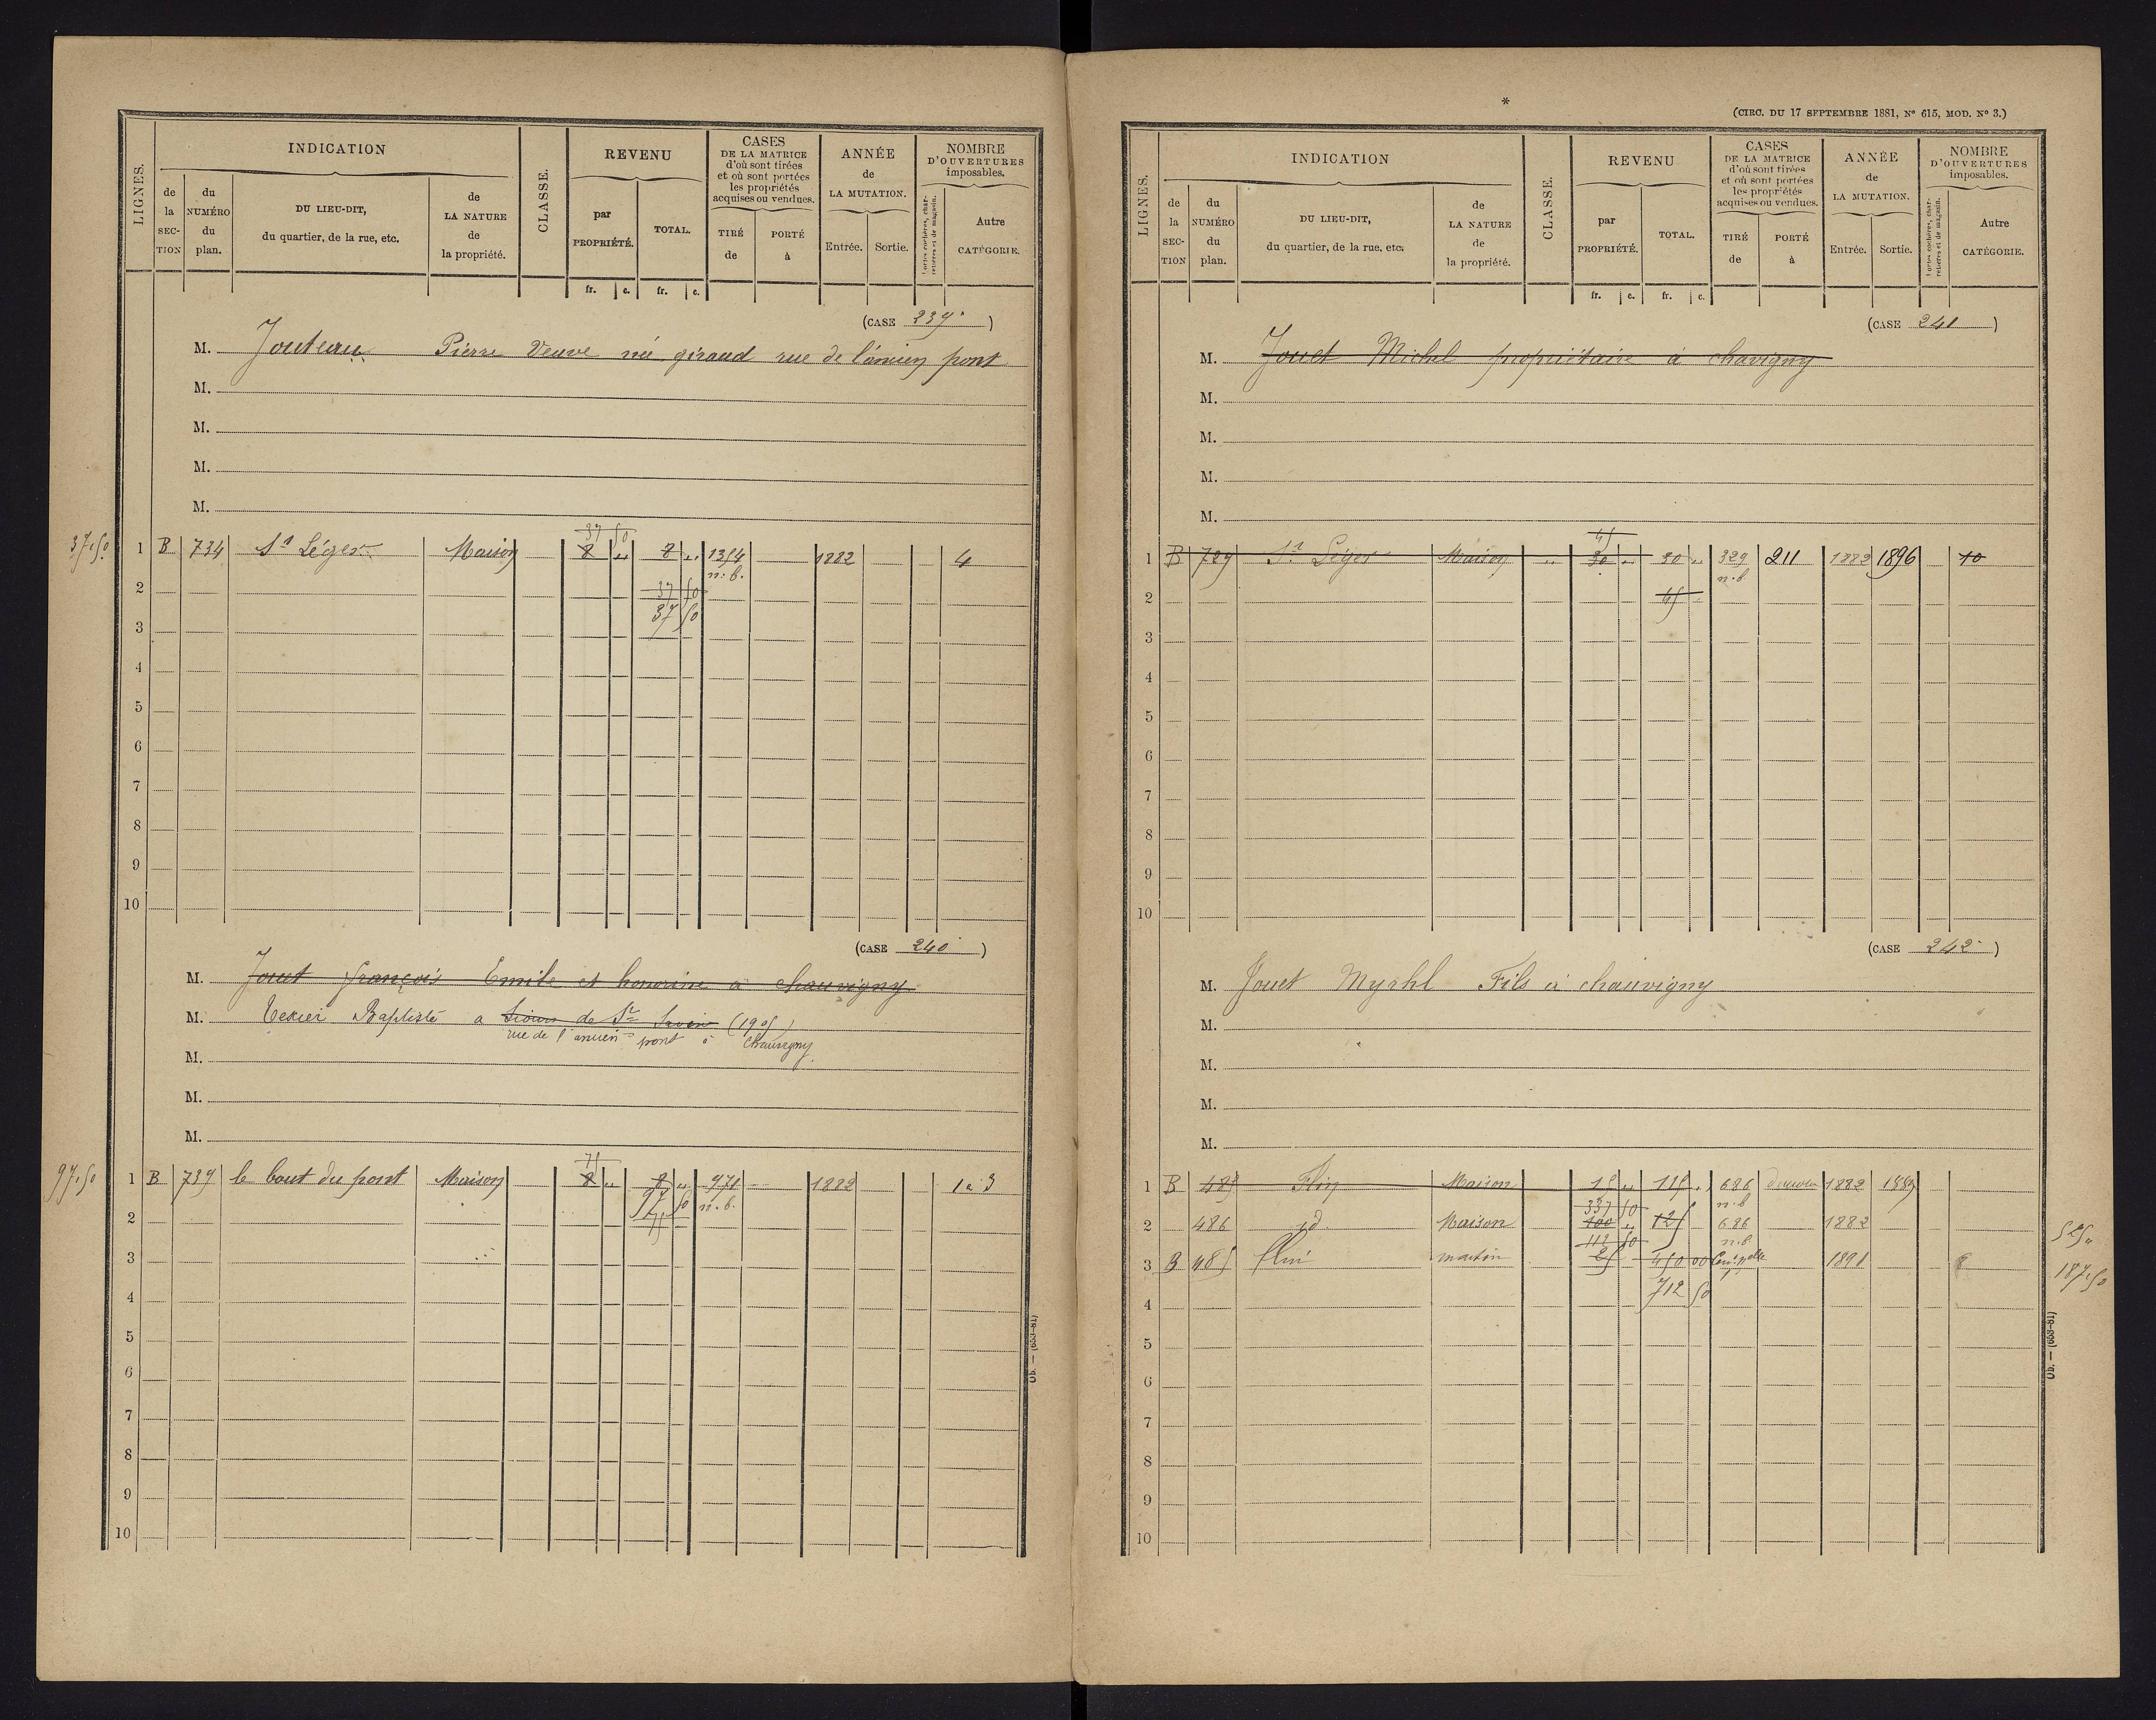 LIGNES.
INDICATION
CLASSE.
REVENU
CASES
DE LA MATRICE
d'où sont tirées
et où sont portées
les propriétés
acquises ou vendues.
ANNÉE
de
LA MUTATION.
NOMBRE
D'OUVERTURES
imposables.
de la SECTION
du NUMÉRO du plan.
DU LIEU-DIT,
du quartier, de la rue, etc.
de LA NATURE de la propriété.
par PROPRIÉTÉ.
TOTAL.
TIRÉ de
PORTÉ à
Entrée.
Sortie.
Portes cochères, charretières et de magasin.
Autre CATÉGORIE.
fr. c. fr. c.
(CASE 239 )
M. Jouteau Pierre Veuve née giraud rue de l'ancien pont
M.
M.
M.
M.
37,50
37 50
1 B 734 St Léger Maison 8 „ 8 „ 1354 1882 4
n.b.
2 37 50
3 37 50
4
5
6
7
8
9
10
(CASE 240 )
M. Jouet françois Emile et honorine a chauvigny
M. Texier Baptiste a de St Savin (1905)
rue de l'ancien pont à Chauvigny
M.
M.
M.
97,50
75
1 B 739 le bout du pont Maison 8 „ 8 „ 971 1882 1 a 3
97 50 n.b.
2 75
3
4
5
6
7
8
9
10
Ob. — (653-81)
*
(CIRC. DU 17 SEPTEMBRE 1881, N° 615, MOD. N° 3.)
LIGNES.
INDICATION
CLASSE.
REVENU
CASES
DE LA MATRICE
d'où sont tirées
et où sont portées
les propriétés
acquises ou vendues.
ANNÉE
de
LA MUTATION.
NOMBRE
D'OUVERTURES
imposables.
de la SECTION
du NUMÉRO du plan.
DU LIEU-DIT,
du quartier, de la rue, etc.
de LA NATURE de la propriété.
par PROPRIÉTÉ.
TOTAL.
TIRÉ de
PORTÉ à
Entrée.
Sortie.
Portes cochères, charretières et de magasin.
Autre CATÉGORIE.
fr. c. fr. c.
(CASE 241 )
M. Jouet Michel propriétaire à chavigny
M.
M.
M.
M.
45
1 B 729 St Léger Maison „ 30 „ 30 „ 329 211 1882 1896 10
n.b
2 45
3
4
5
6
7
8
9
10
(CASE 242 )
M. Jouet Myrhl Fils à chauvigny
M.
M.
M.
M.
1 B 485 Flin Maison 15 „ 115 „ 686 1882 1889
337 50 n.b
2 486 id Maison 100 „ 125 686 1882
112 50 n.b.
525„
3 B 485 maison 25 450 00 1891 8
187,50
4 712 50
5
6
7
8
9
10
Ob. — (653-81)